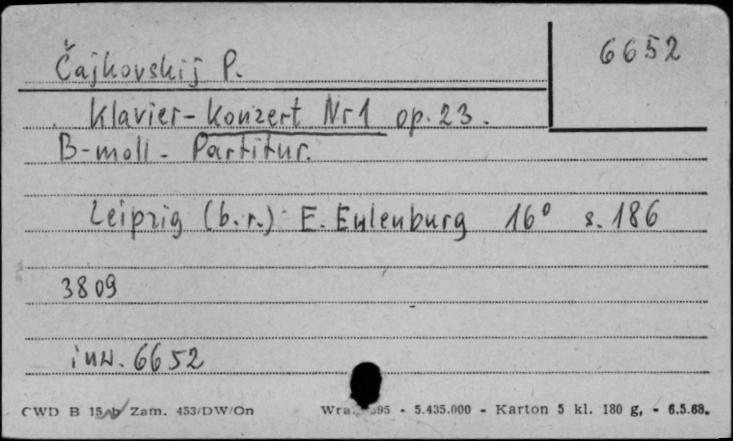 6652
Čajkovskij P.
Klavier-Konzert Nr 1 op. 23.
B-moll - Partitur.
Leipzig (b.r.) E. Eulenburg 16° s. 186
3809
inw. 6652
CWD B 15 b Zam. 453/DW/On 95 - 5.435.000 - Karton 5 kl. 180 g, - 6.5.68.